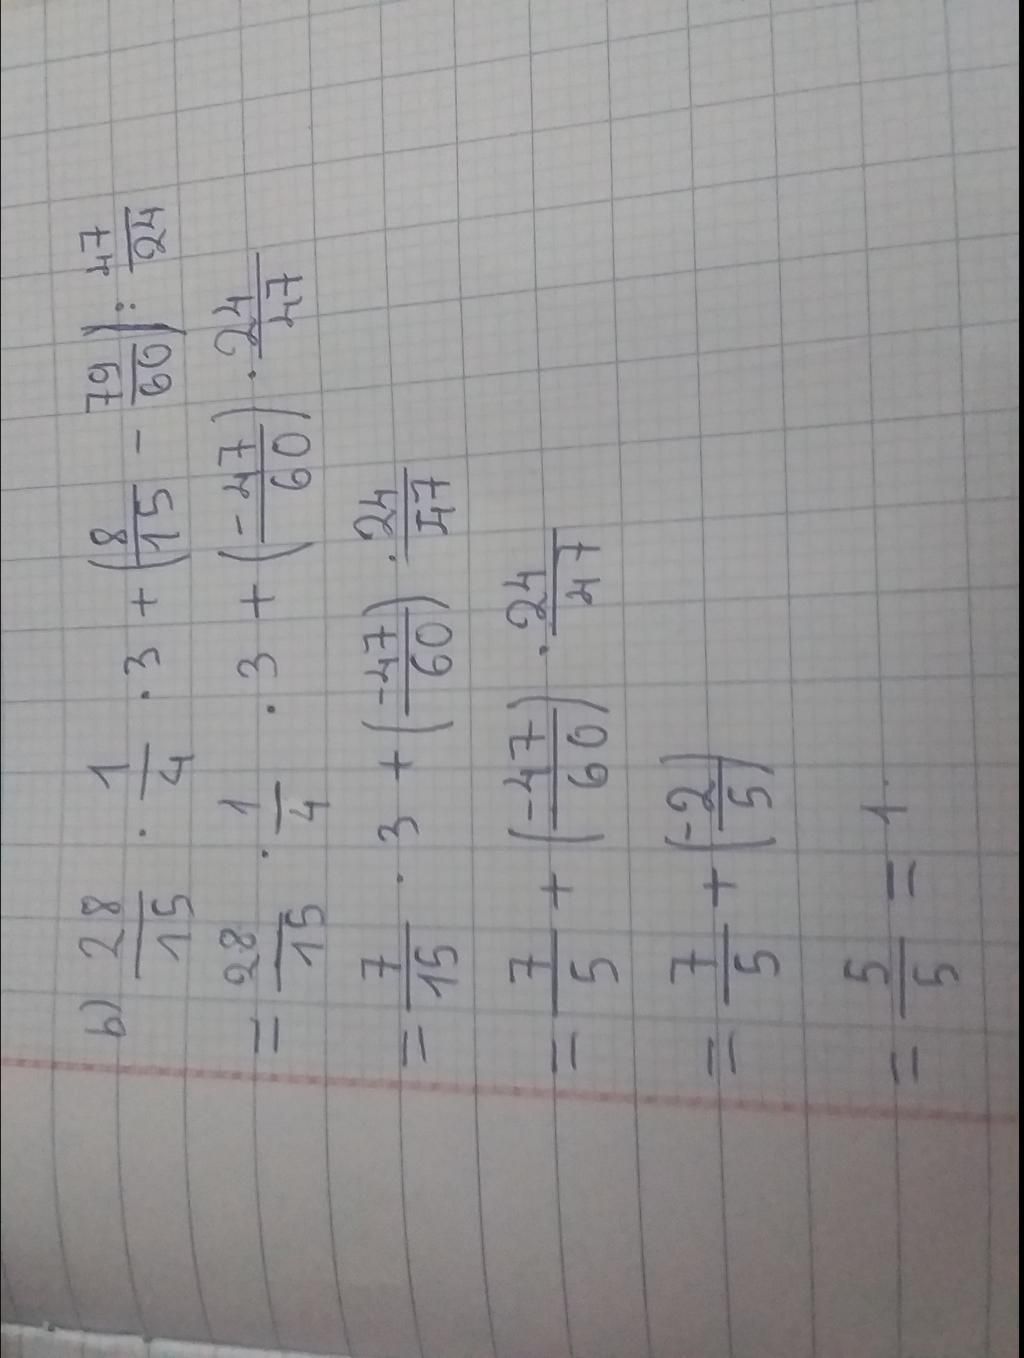 b) 28/15 . 1/4 . 3 + (8/15 - 79/60) : 47/24
= 28/15 . 1/4 . 3 + (-47/60) . 24/47
= 7/15 . 3 + (-47/60) . 24/47
= 7/5 + (-47/60) . 24/47
= 7/5 + (-2/5)
= 5/5 = 1